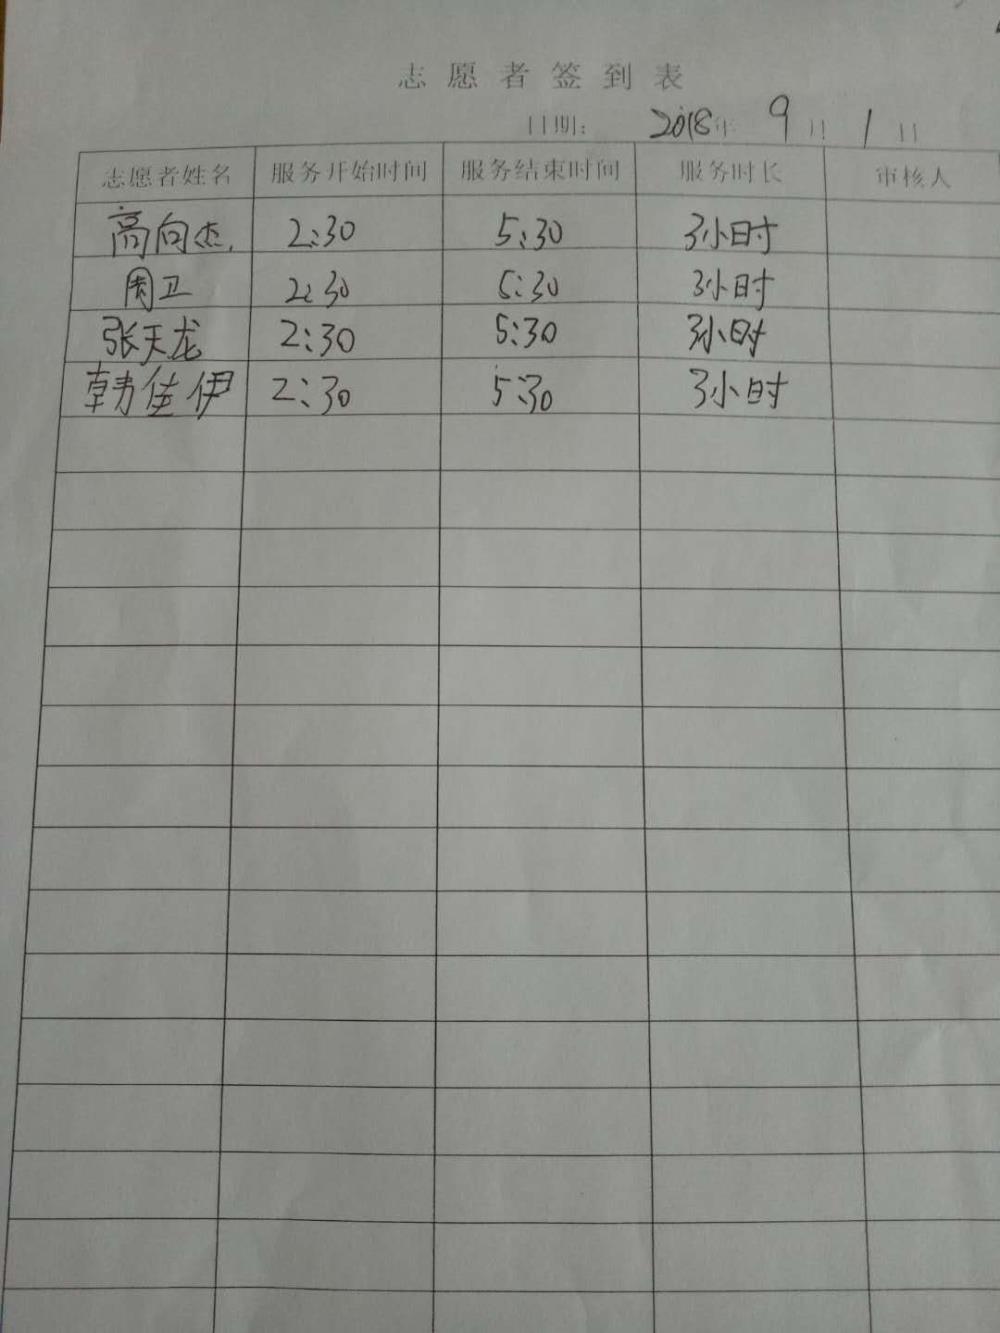 志愿者签到表
日期: 2018年 9月 1日
志愿者姓名 服务开始时间 服务结束时间 服务时长 审核人
高向杰 2:30 5:30 3小时
周卫 2:30 5:30 3小时
张天龙 2:30 5:30 3小时
韩佳伊 2:30 5:30 3小时